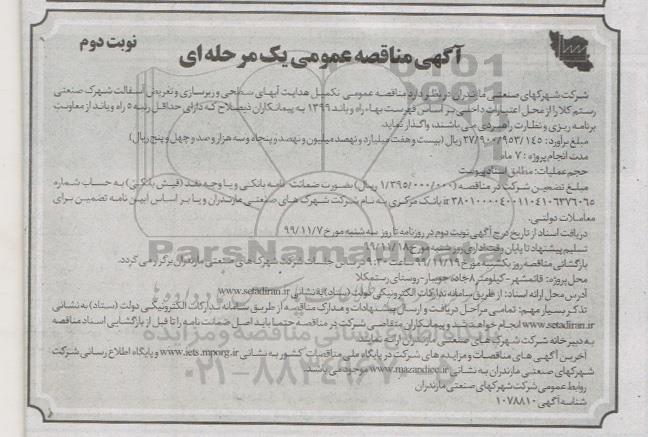 نوبت دوم
آگهی مناقصه عمومی یک مرحله ای
شرکت شهرکهای صنعتی مازندران در نظر دارد مناقصه عمومی تکمیل هدایت آبهای سطحی و زیرسازی و تعریض آسفالت شهرک صنعتی
رستم کلا را از محل اعتبارات داخلی بر اساس فهرست بهاء راه و باند ۱۳۹۹ به پیمانکاران ذیصلاح که دارای حداقل رتبه ۵ راه و باند از معاونت
برنامه ریزی و نظارت راهبردی می باشند، واگذار نماید.
مبلغ برآورد: ۲۷/۹۰۰/۹۵۳/۱۴۵ ریال (بیست و هفت میلیارد و نهصد میلیون و نهصد و پنجاه و سه هزار و صد و چهل و پنج ریال)
مدت انجام پروژه: ۷ ماه
حجم عملیات: مطابق اسناد پیوست
مبلغ تضمین شرکت در مناقصه (۱/۳۹۵/۰۰۰/۰۰۰ ریال) بصورت ضمانت نامه بانکی و یا وجه نقد (فیش بانکی) به حساب شماره
بانک مرکزی به نام شرکت شهرک های صنعتی مازندران و یا بر اساس آیین نامه تضمین برای
معاملات دولتی.
دریافت اسناد از تاریخ درج آگهی نوبت دوم در روزنامه تا روز سه شنبه مورخ ۹۹/۱۱/۷
تسلیم پیشنهاد تا پایان وقت اداری روز شنبه مورخ ۹۹/۱۱/۱۸
بازگشائی مناقصه روز یکشنبه مورخ ۹۹/۱۱/۱۹ ساعت ۹:۳۰ در سالن جلسات شرکت شهرک های صنعتی مازندران برگزار می گردد.
محل پروژه: قائمشهر - کیلومتر ۸ جاده جویبار - روستای رستمکلا
آدرس محل ارائه اسناد: از طریق سامانه تدارکات الکترونیکی دولت (ستاد) به نشانی www.setadiran.ir
تذکر بسیار مهم: تمامی مراحل دریافت و ارسال پیشنهادات و مدارک مناقصه از طریق سامانه تدارکات الکترونیکی دولت (ستاد) به نشانی
www.setadiran.ir انجام خواهد شد و پیمانکاران متقاضی شرکت در مناقصه حتما باید اصل ضمانت نامه را تا قبل از بازگشایی اسناد مناقصه
به دبیرخانه شرکت شهرک های صنعتی مازندران ارائه نمایند.
آخرین آگهی های مناقصات و مزایده های شرکت در پایگاه ملی مناقصات کشور به نشانی www.iets.mporg.ir و پایگاه اطلاع رسانی شرکت
شهرکهای صنعتی مازندران به نشانی www.mazandiec.ir موجود می باشند.
روابط عمومی شرکت شهرکهای صنعتی مازندران
شناسه آگهی ۱۰۷۸۸۱۰
ParsNamadData
۰۲۱-۸۸۳۴۹۶۷۰